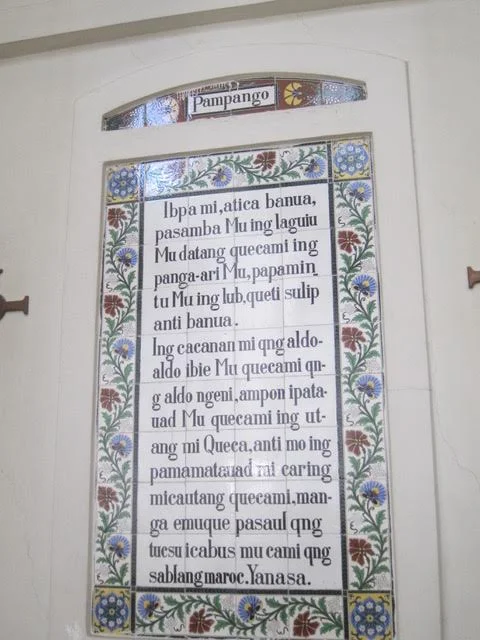 Pampango
Ibpa mi, atica banua,
pasamba Mu ing laguiu
Mu datang quecami ing
panga-ari Mu, papamin
tu Mu ing lub, queti sulip
anti banua.
Ing cacanan mi qng aldo-
aldo ibie Mu quecami qn-
g aldo ngeni, ampon ipata-
uad Mu quecami ing ut-
ang mi Queca, anti mo ing
pamamatauad mi caring
micautang quecami, man-
ga emuque pasaul qng
tucsu icabus mu cami qng
sablang maroc. Yanasa.